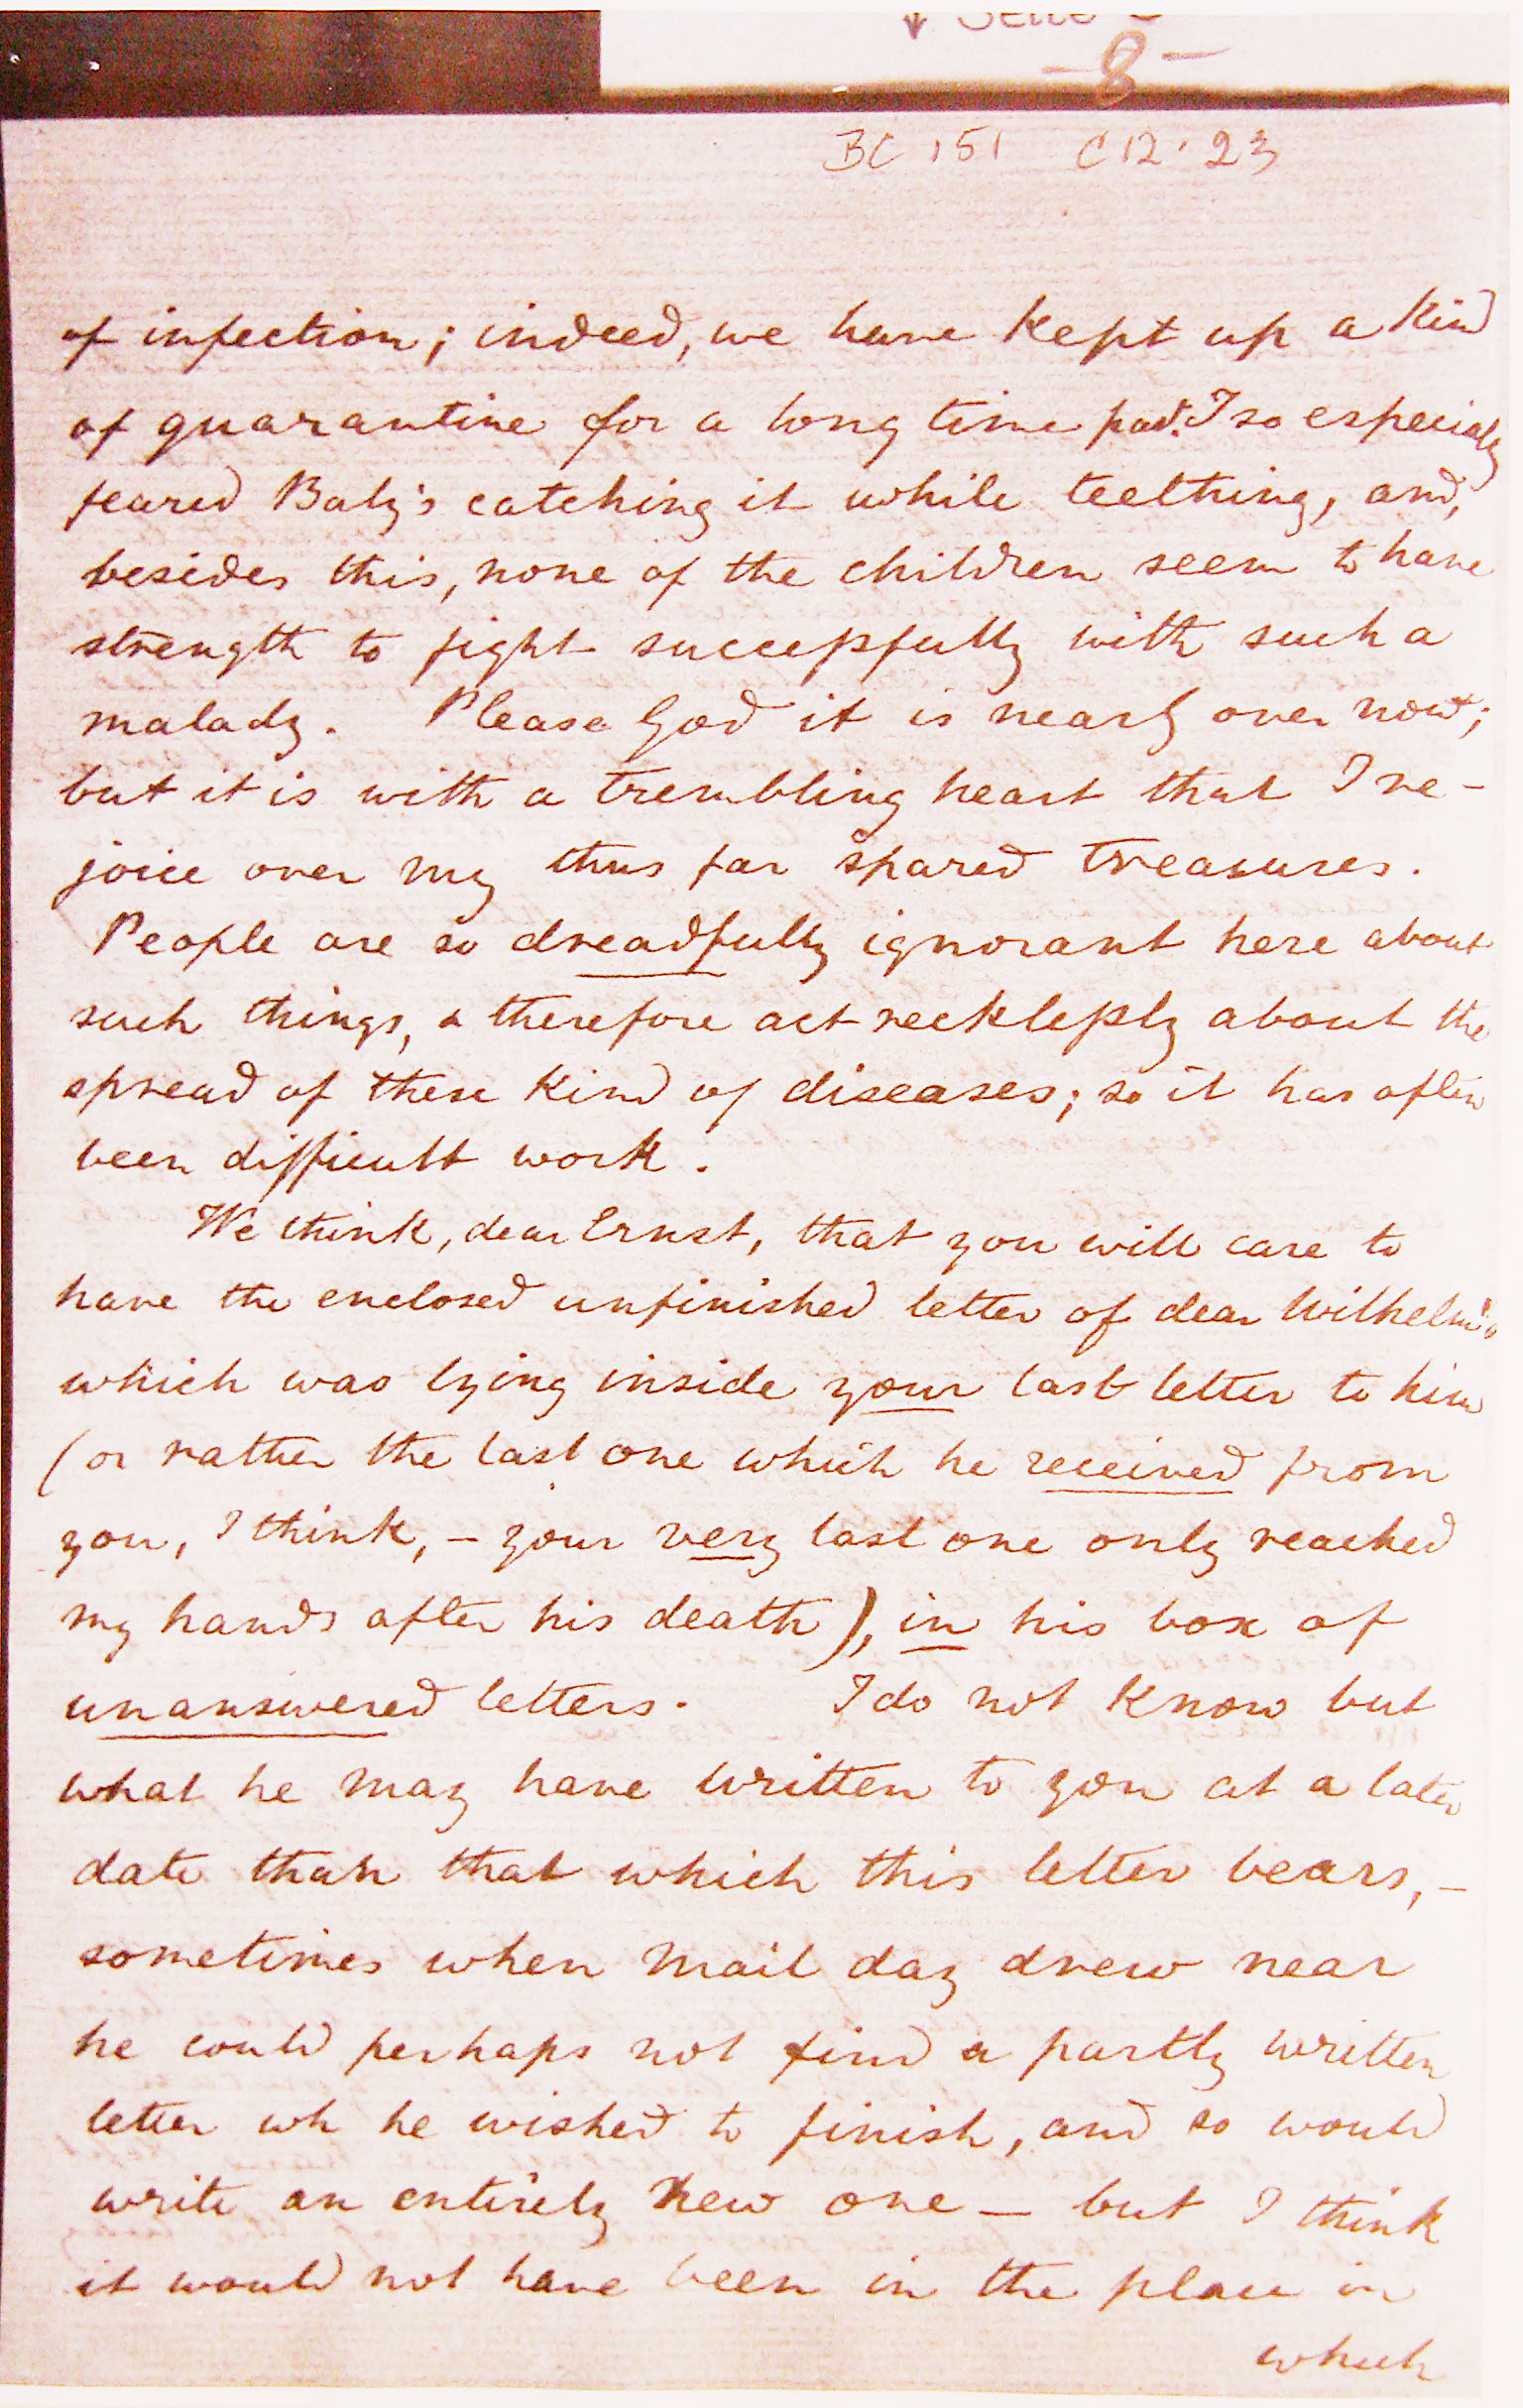 - 8 -
BC 151 C12.23
of infection; indeed, we have kept up a kind
of quarantine for a long time past. I so especially
feared Baby's catching it while teething, and,
besides this, none of the children seem to have
strength to fight successfully with such a
malady. Please God it is nearly over now;
but it is with a trembling heart that I re-
joice over my thus far spared treasures.
People are so dreadfully ignorant here about
such things, & therefore act recklessly about the
spread of these kind of diseases; so it has often
been difficult work.
We think, dear Ernst, that you will care to
have the enclosed unfinished letter of dear Wilhelm's
which was lying inside your last letter to him
(or rather the last one which he received from
you, I think, – your very last one only reached
my hands after his death), in his box of
unanswered letters. I do not know but
what he may have written to you at a later
date than that which this letter bears, –
sometimes when mail day drew near
he could perhaps not find a partly written
letter wh he wished to finish, and so would
write an entirely new one – but I think
it would not have been in the place in
which